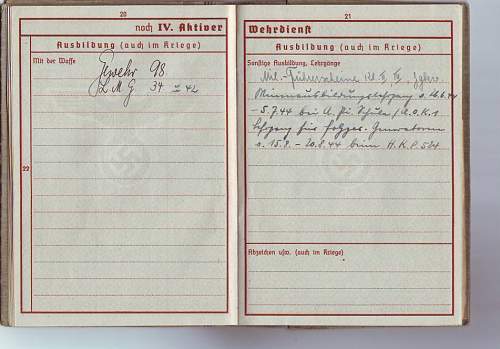 20
noch IV. Aktiver
Ausbildung (auch im Kriege)
Mit der Waffe
Gewehr 98
L M G 34 u 42
22
21
Wehrdienst
Ausbildung (auch im Kriege)
Sonstige Ausbildung, Lehrgänge
Mil.-Führerscheine Kl.
Minenausbildungslehrgang v.
-5.7.44 bei A. Pi. Schule / A.O.K. 1
Lehrgang für Generatoren
v. 15.8. - 20.8.44 beim H.K.P.
Abzeichen usw. (auch im Kriege)